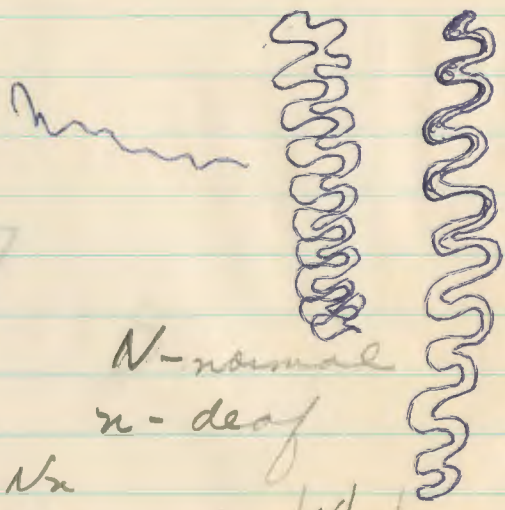 N - normal
n - deaf
Nn